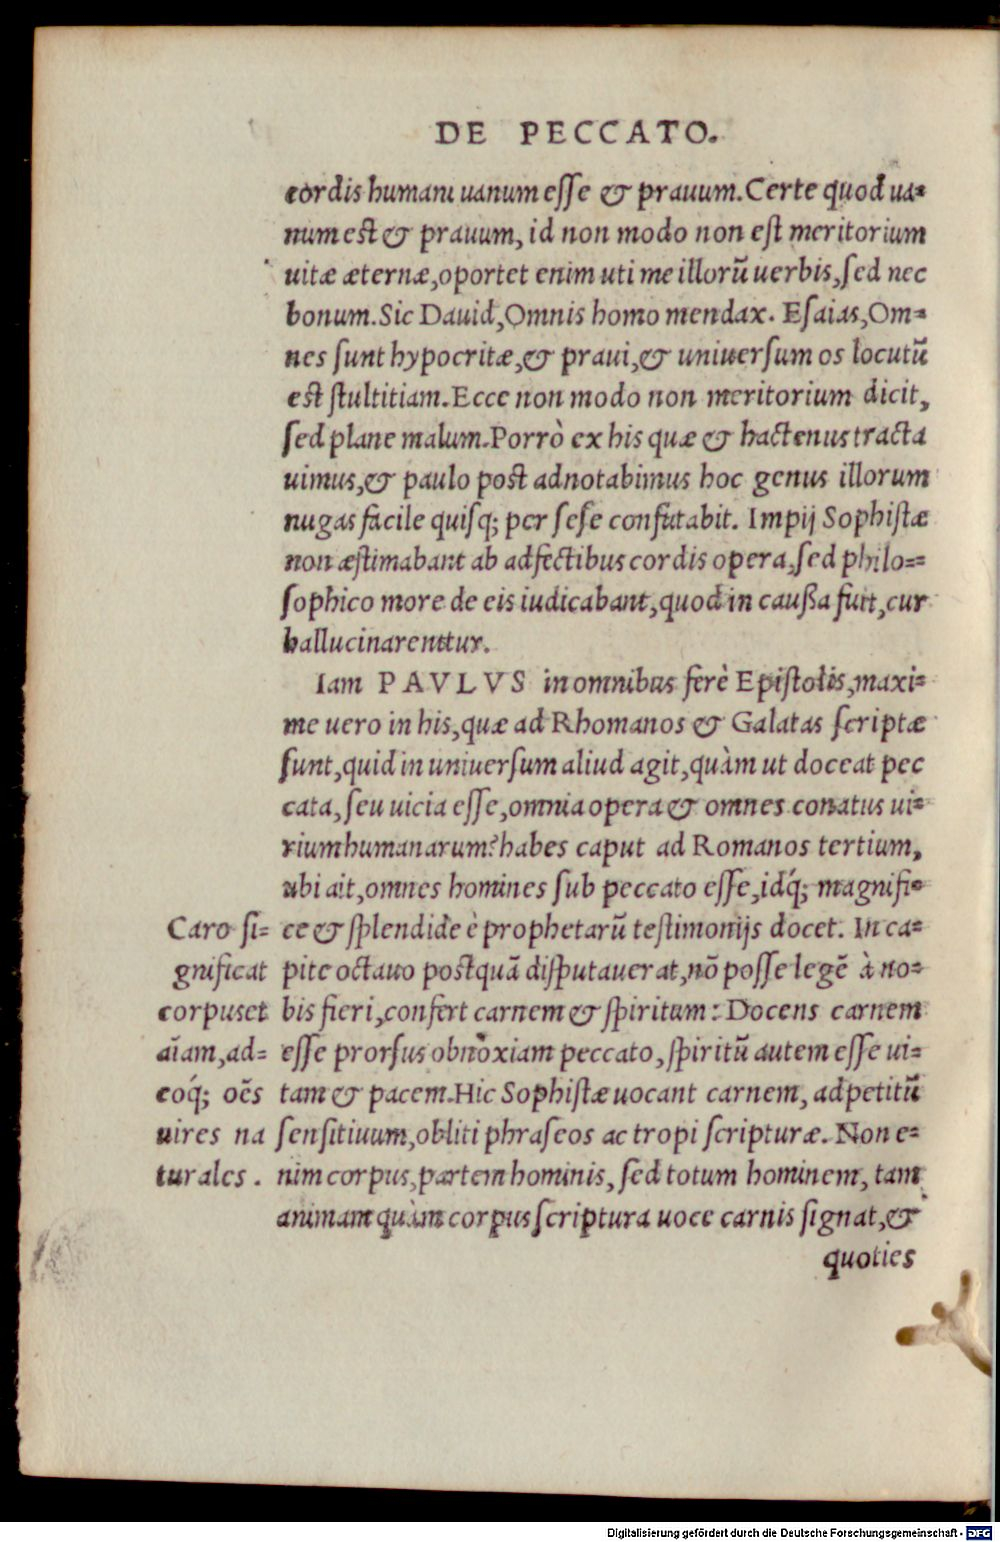 DE PECCATO.
cordis humani uanum esse & prauum. Certe quod ua=
num est & prauum, id non modo non est meritorium
uitæ æternæ, oportet enim uti me illorũ uerbis, sed nec
bonum. Sic Dauid, Omnis homo mendax. Esaias, Om=
nes sunt hypocritæ, & praui, & uniuersum os locutũ
est stultitiam. Ecce non modo non meritorium dicit,
sed plane malum. Porrò ex his quæ & hactenus tracta
uimus, & paulo post adnotabimus hoc genus illorum
nugas facile quisq; per sese confutabit. Impij Sophistæ
non æstimabant ab adfectibus cordis opera, sed philo==
sophico more de eis iudicabant, quod in caußa fuit, cur
hallucinarentur.
Iam PAVLVS in omnibus ferè Epistolis, maxi=
me uero in his, quæ ad Rhomanos & Galatas scriptæ
sunt, quid in uniuersum aliud agit, quàm ut doceat pec
cata, seu uicia esse, omnia opera & omnes conatus ui=
rium humanarum? habes caput ad Romanos tertium,
ubi ait, omnes homines sub peccato esse, idq́; magnifi=
ce & splendide è prophetarũ testimonijs docet. In ca=
pite octauo postquã disputauerat, nõ posse legẽ à no=
bis fieri, confert carnem & spiritum: Docens carnem
esse prorsus obnoxiam peccato, spiritũ autem esse ui=
tam & pacem. Hic Sophistæ uocant carnem, adpetitũ
sensitiuum, obliti phraseos ac tropi scripturæ. Non e=
nim corpus, partem hominis, sed totum hominem, tam
animam quàm corpus scriptura uoce carnis signat, &
quoties
Caro si=
gnificat
corpus et
aĩam, ad=
eoq́; oẽs
uires na
turales.
Digitalisierung gefördert durch die Deutsche Forschungsgemeinschaft - DFG